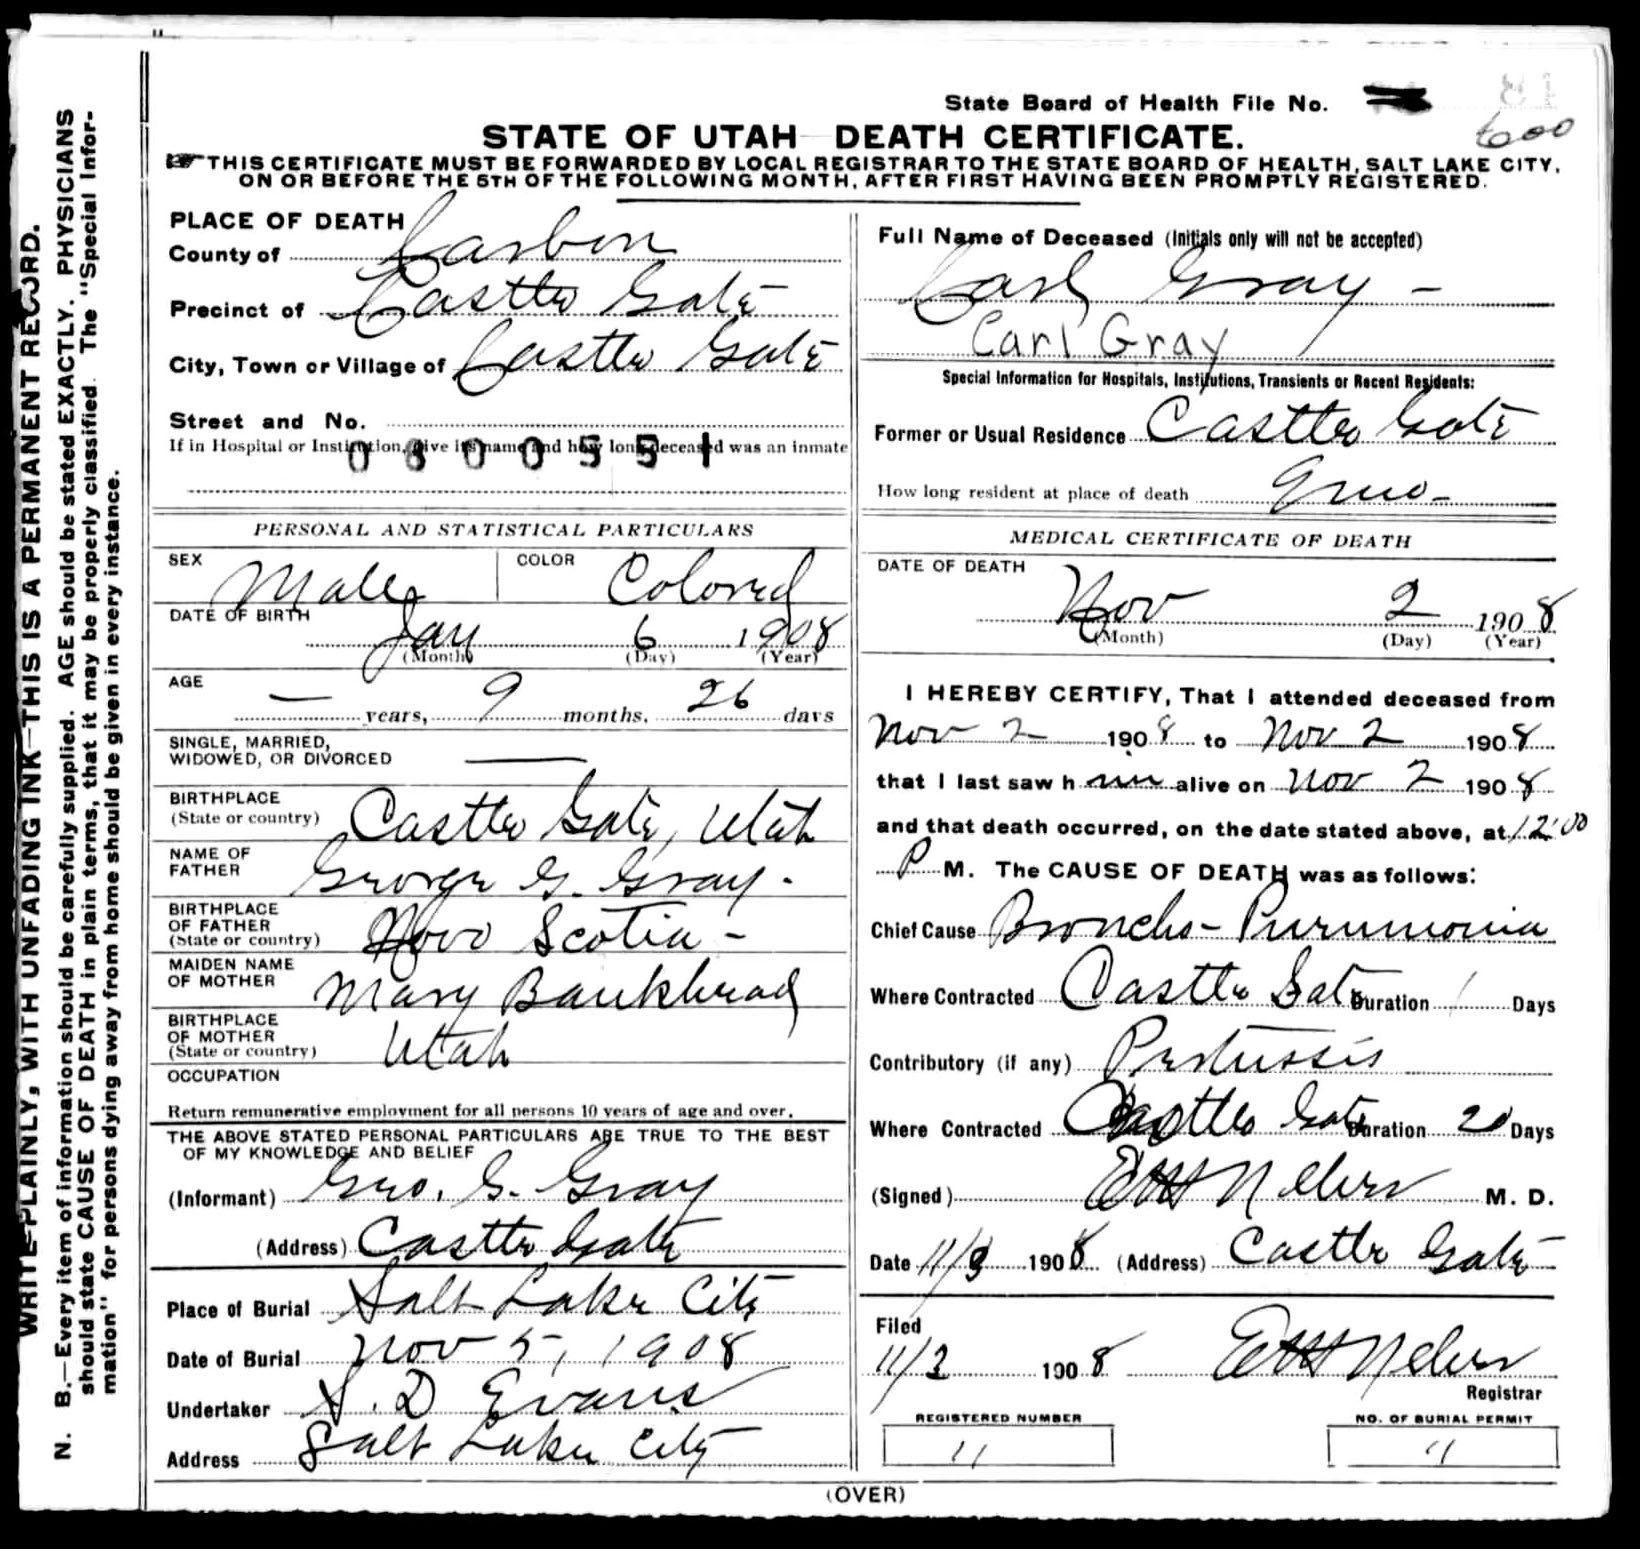 State Board of Health File No.
600
STATE OF UTAH DEATH CERTIFICATE.
THIS CERTIFICATE MUST BE FORWARDED BY LOCAL REGISTRAR TO THE STATE BOARD OF HEALTH, SALT LAKE CITY,
ON OR BEFORE THE 5TH OF THE FOLLOWING MONTH, AFTER FIRST HAVING BEEN PROMPTLY REGISTERED.
WRITE PLAINLY, WITH UNFADING INK—THIS IS A PERMANENT RECORD.
N. B.—Every item of information should be carefully supplied. AGE should be stated EXACTLY. PHYSICIANS
should state CAUSE OF DEATH in plain terms, that it may be properly classified. The "Special Infor-
mation" for persons dying away from home should be given in every instance.
PLACE OF DEATH
County of Carbon
Precinct of Castle Gate
City, Town or Village of Castle Gate
Street and No.
If in Hospital or Institution, give its name and how long deceased was an inmate
0800551
PERSONAL AND STATISTICAL PARTICULARS
SEX Male COLOR Colored
DATE OF BIRTH Jan 6 1908
(Month) (Day) (Year)
AGE — years, 9 months, 26 days
SINGLE, MARRIED,
WIDOWED, OR DIVORCED —
BIRTHPLACE
(State or country) Castle Gate, Utah
NAME OF
FATHER George G. Gray.
BIRTHPLACE
OF FATHER
(State or country) Novo Scotia -
MAIDEN NAME
OF MOTHER Mary Bankhead
BIRTHPLACE
OF MOTHER
(State or country) Utah
OCCUPATION
Return remunerative employment for all persons 10 years of age and over.
THE ABOVE STATED PERSONAL PARTICULARS ARE TRUE TO THE BEST
OF MY KNOWLEDGE AND BELIEF
(Informant) Geo. G. Gray
(Address) Castle Gate
Place of Burial Salt Lake City
Date of Burial Nov 5, 1908
Undertaker S. D Evans
Address Salt Lake City
Full Name of Deceased (Initials only will not be accepted)
Carl Gray -
Carl Gray
Special Information for Hospitals, Institutions, Transients or Recent Residents:
Former or Usual Residence Castle Gate
How long resident at place of death 9 mo-
MEDICAL CERTIFICATE OF DEATH
DATE OF DEATH
Nov 2 1908
(Month) (Day) (Year)
I HEREBY CERTIFY, That I attended deceased from
Nov 2 1908 to Nov 2 1908
that I last saw him alive on Nov 2 1908
and that death occurred, on the date stated above, at 12:00
P M. The CAUSE OF DEATH was as follows:
Chief Cause Broncho-Pneumonia
Where Contracted Castle Gate Duration 1 Days
Contributory (if any) Pertussis
Where Contracted Castle Gate Duration 20 Days
(Signed) M. D.
Date 11/3 1908 (Address) Castle Gate
Filed
11/3 1908
Registrar
REGISTERED NUMBER
11
NO. OF BURIAL PERMIT
11
(OVER)